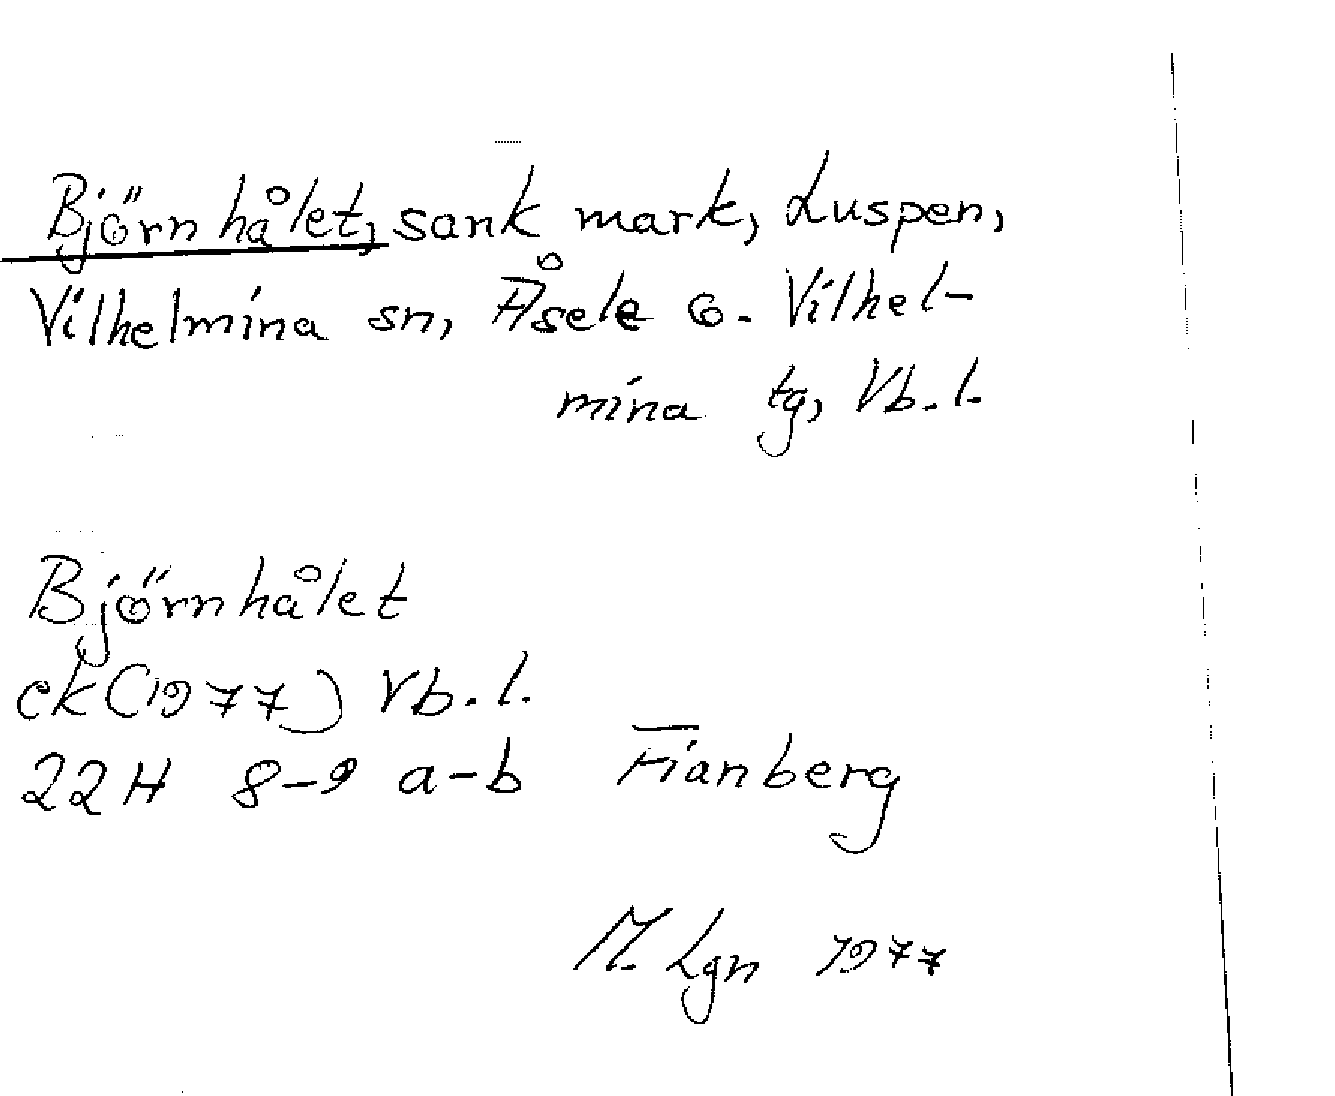 Björnhålet, sank mark, Luspen,
Vilhelmina sn, Åsele o. Vilhel-
mina tg, Vb. l.
Björnhålet
ek (1977) Vb. l.
22H 8-9 a-b Fianberg
M. Lgn 1977